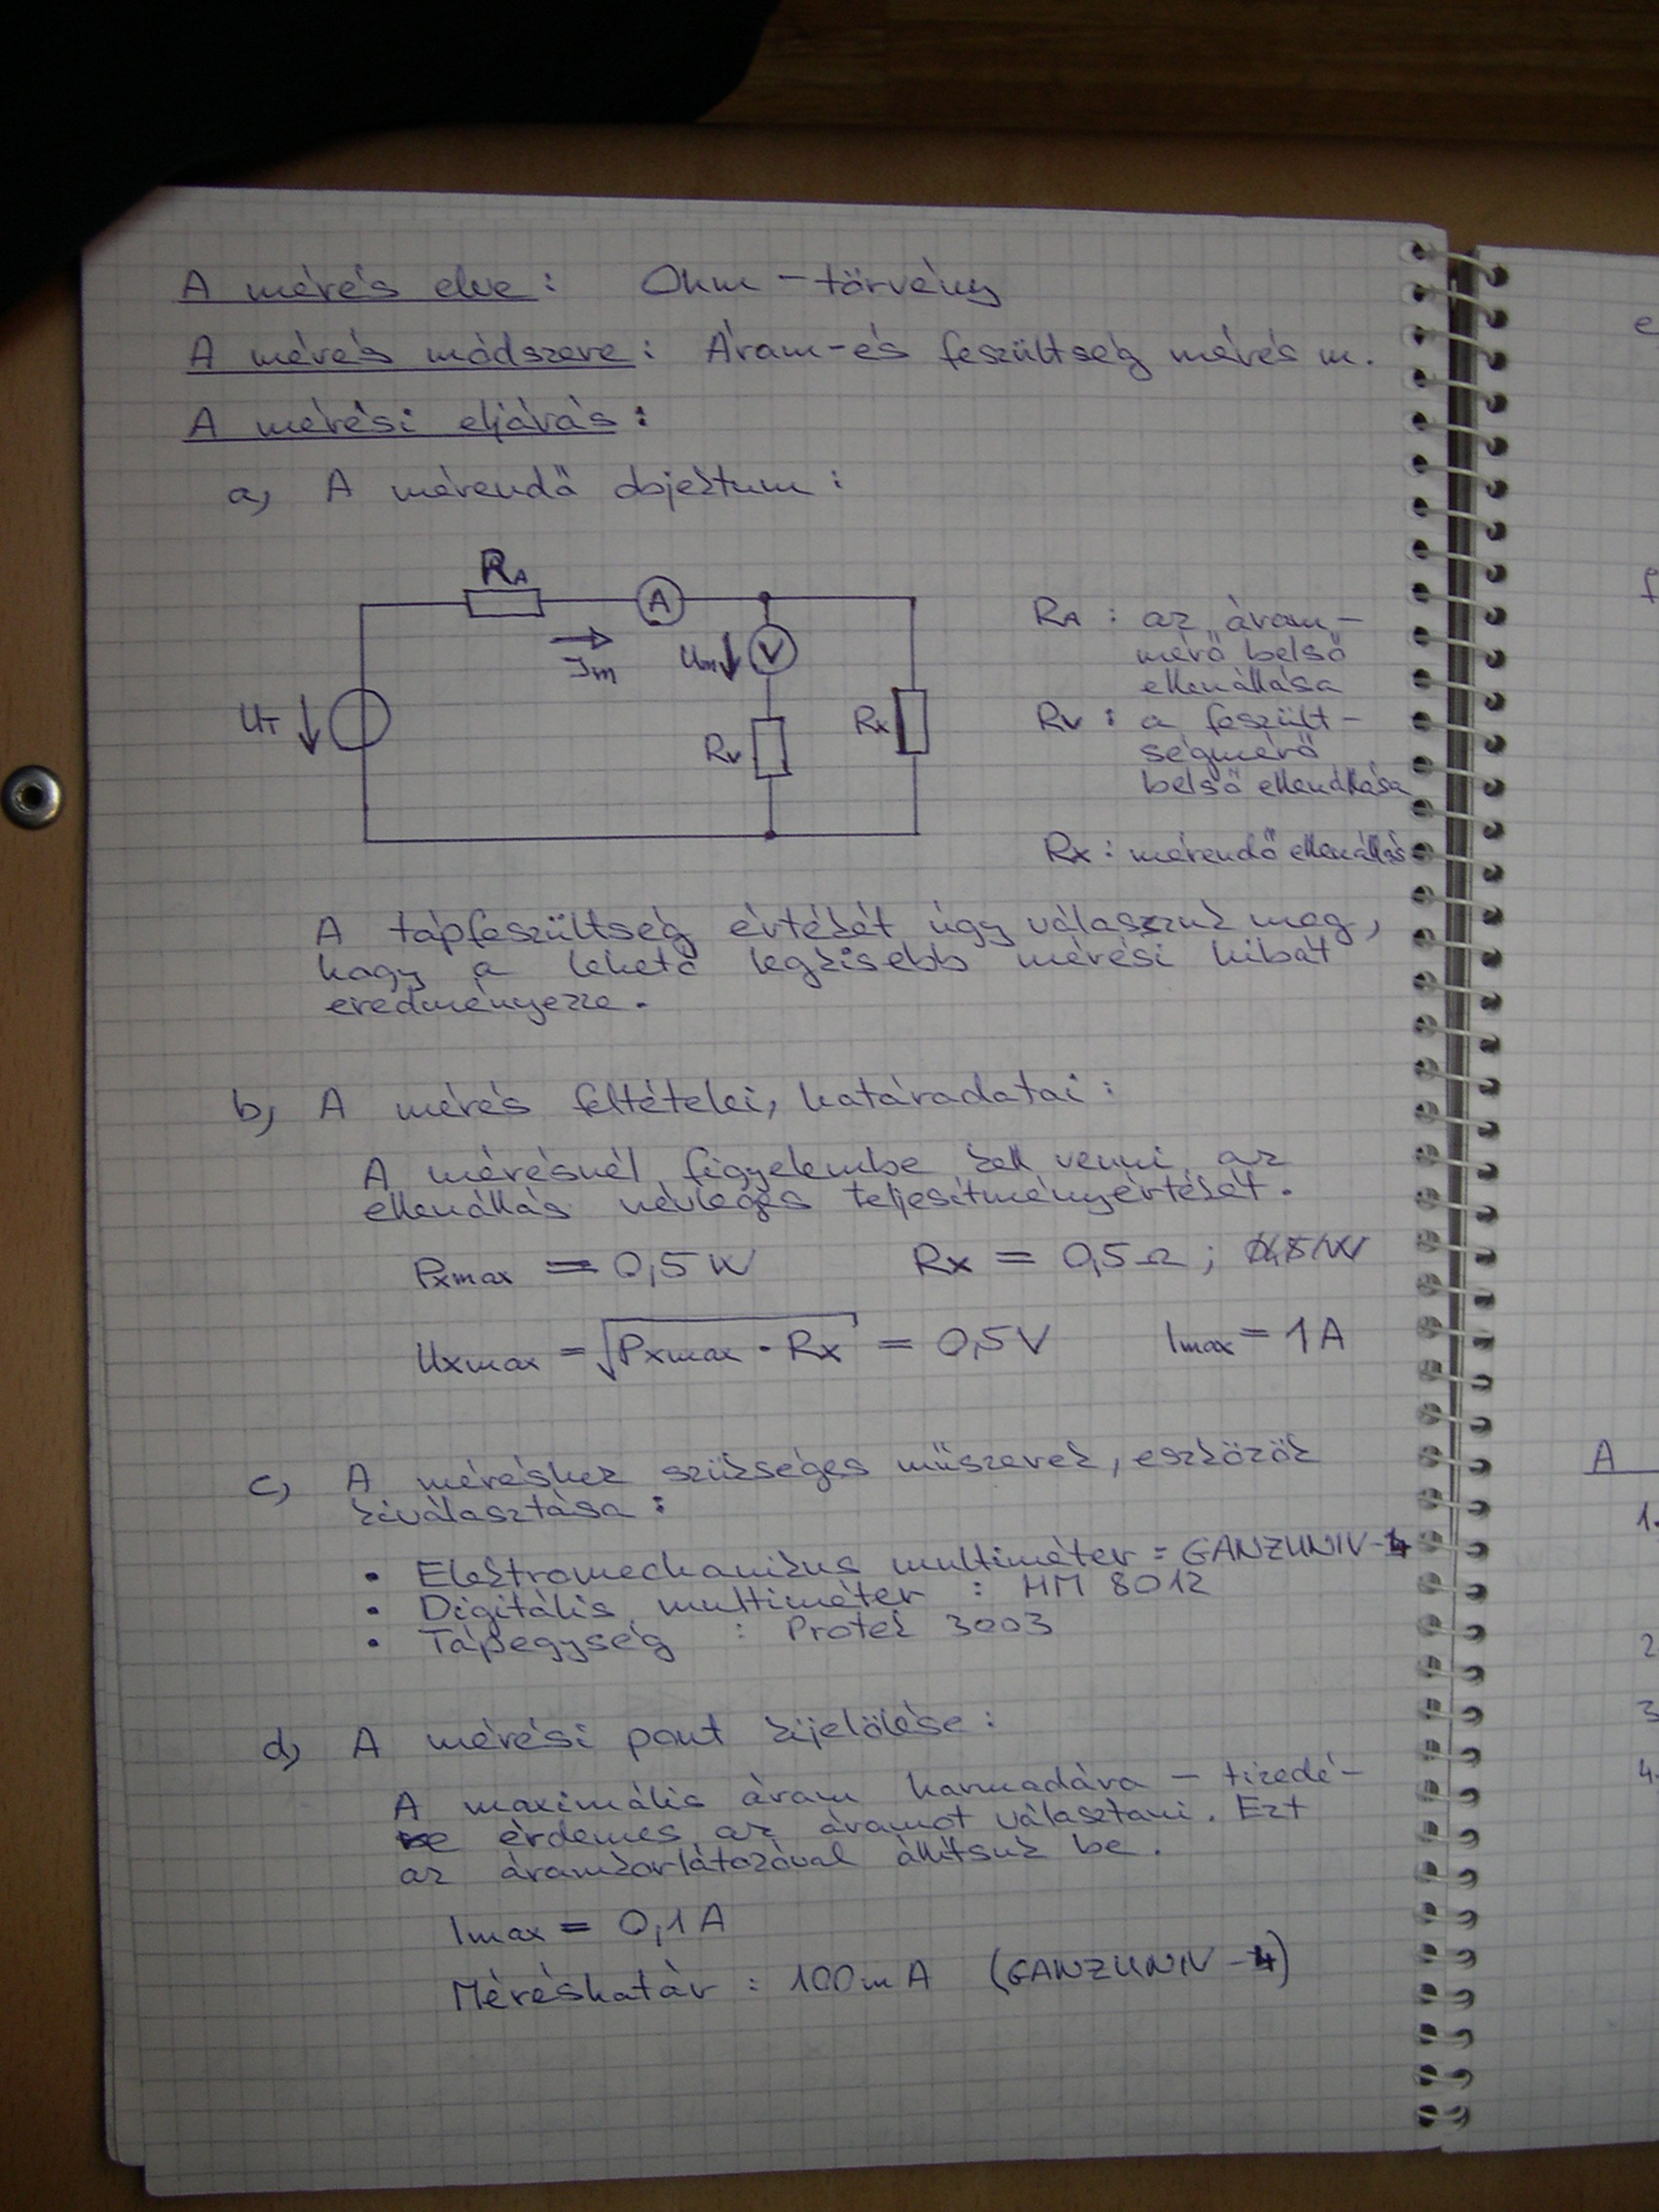 A mérés elve: Ohm-törvény
A mérés módszere: Áram-és feszültség mérés m.
A mérési eljárás:
a, A mérendő objektum:
RA
A
Im
Um
V
UT
Rv
Rx
RA: az áram-
mérő belső
ellenállása
Rv: a feszült-
ségmérő
belső ellenállása
Rx: mérendő ellenállás
A tápfeszültség értékét úgy válasszuk meg,
hogy a lehető legkisebb mérési hibát
eredményezze.
b, A mérés feltételei, határadatai:
A mérésnél figyelembe kell venni az
ellenállás névleges teljesítményértékét.
Pxmax = 0,5W Rx = 0,5Ω;
Uxmax = √Pxmax · Rx = 0,5V Imax = 1A
c, A méréshez szükséges műszerek, eszközök
kiválasztása:
• Elektromechanikus multiméter = GANZUNIV-4
• Digitális multiméter : HM 8012
• Tápegység : Protek 3003
d, A mérési pont kijelölése:
A maximális áram harmadára - tizedé-
re érdemes az áramot választani. Ezt
az áramkorlátozóval állítsuk be.
Imax = 0,1A
Méréshatár : 100mA (GANZUNIV-4)
e
f
A
1.
2
3
4.